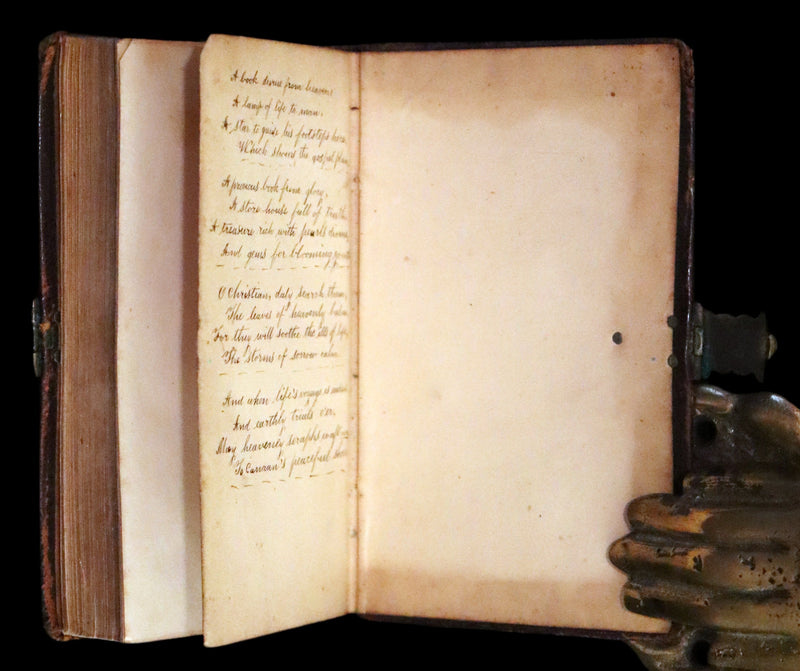 A book divine from heaven
A lamp of life to man,
A star to guide his footsteps home,
Which shows the gospel plan
A precious book from glory,
A store house full of truth
A treasure rich with pearls divine
And gems for blooming youth
O Christian, daly search them,
The leaves of heavenly balm
For they will soothe the ills of life,
The storms of sorrow calm
And when life's voyage is
And earthly trials o'er,
May heavenly seraphs waft
To Canaan's peaceful shore